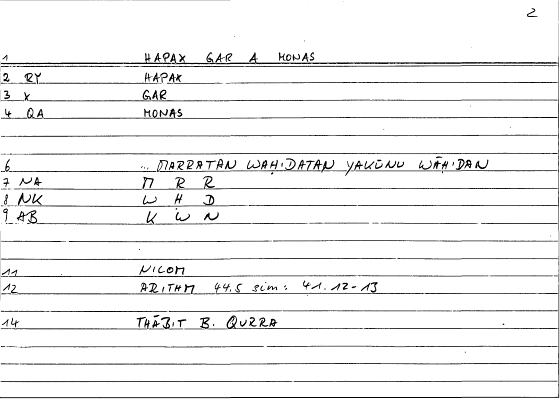 2
1 HAPAX GAR A MONAS
2 RY HAPAX
3 X GAR
4 QA MONAS
6 ... MARRATAN WAḤIDATAN YAKŪNU WĀḤIDAN
7 NA M R R
8 NK W H D
9 AB K W N
11 NICOM
12 ARITHM 44.5 sim: 41.12-13
14 THĀBIT B. QURRA